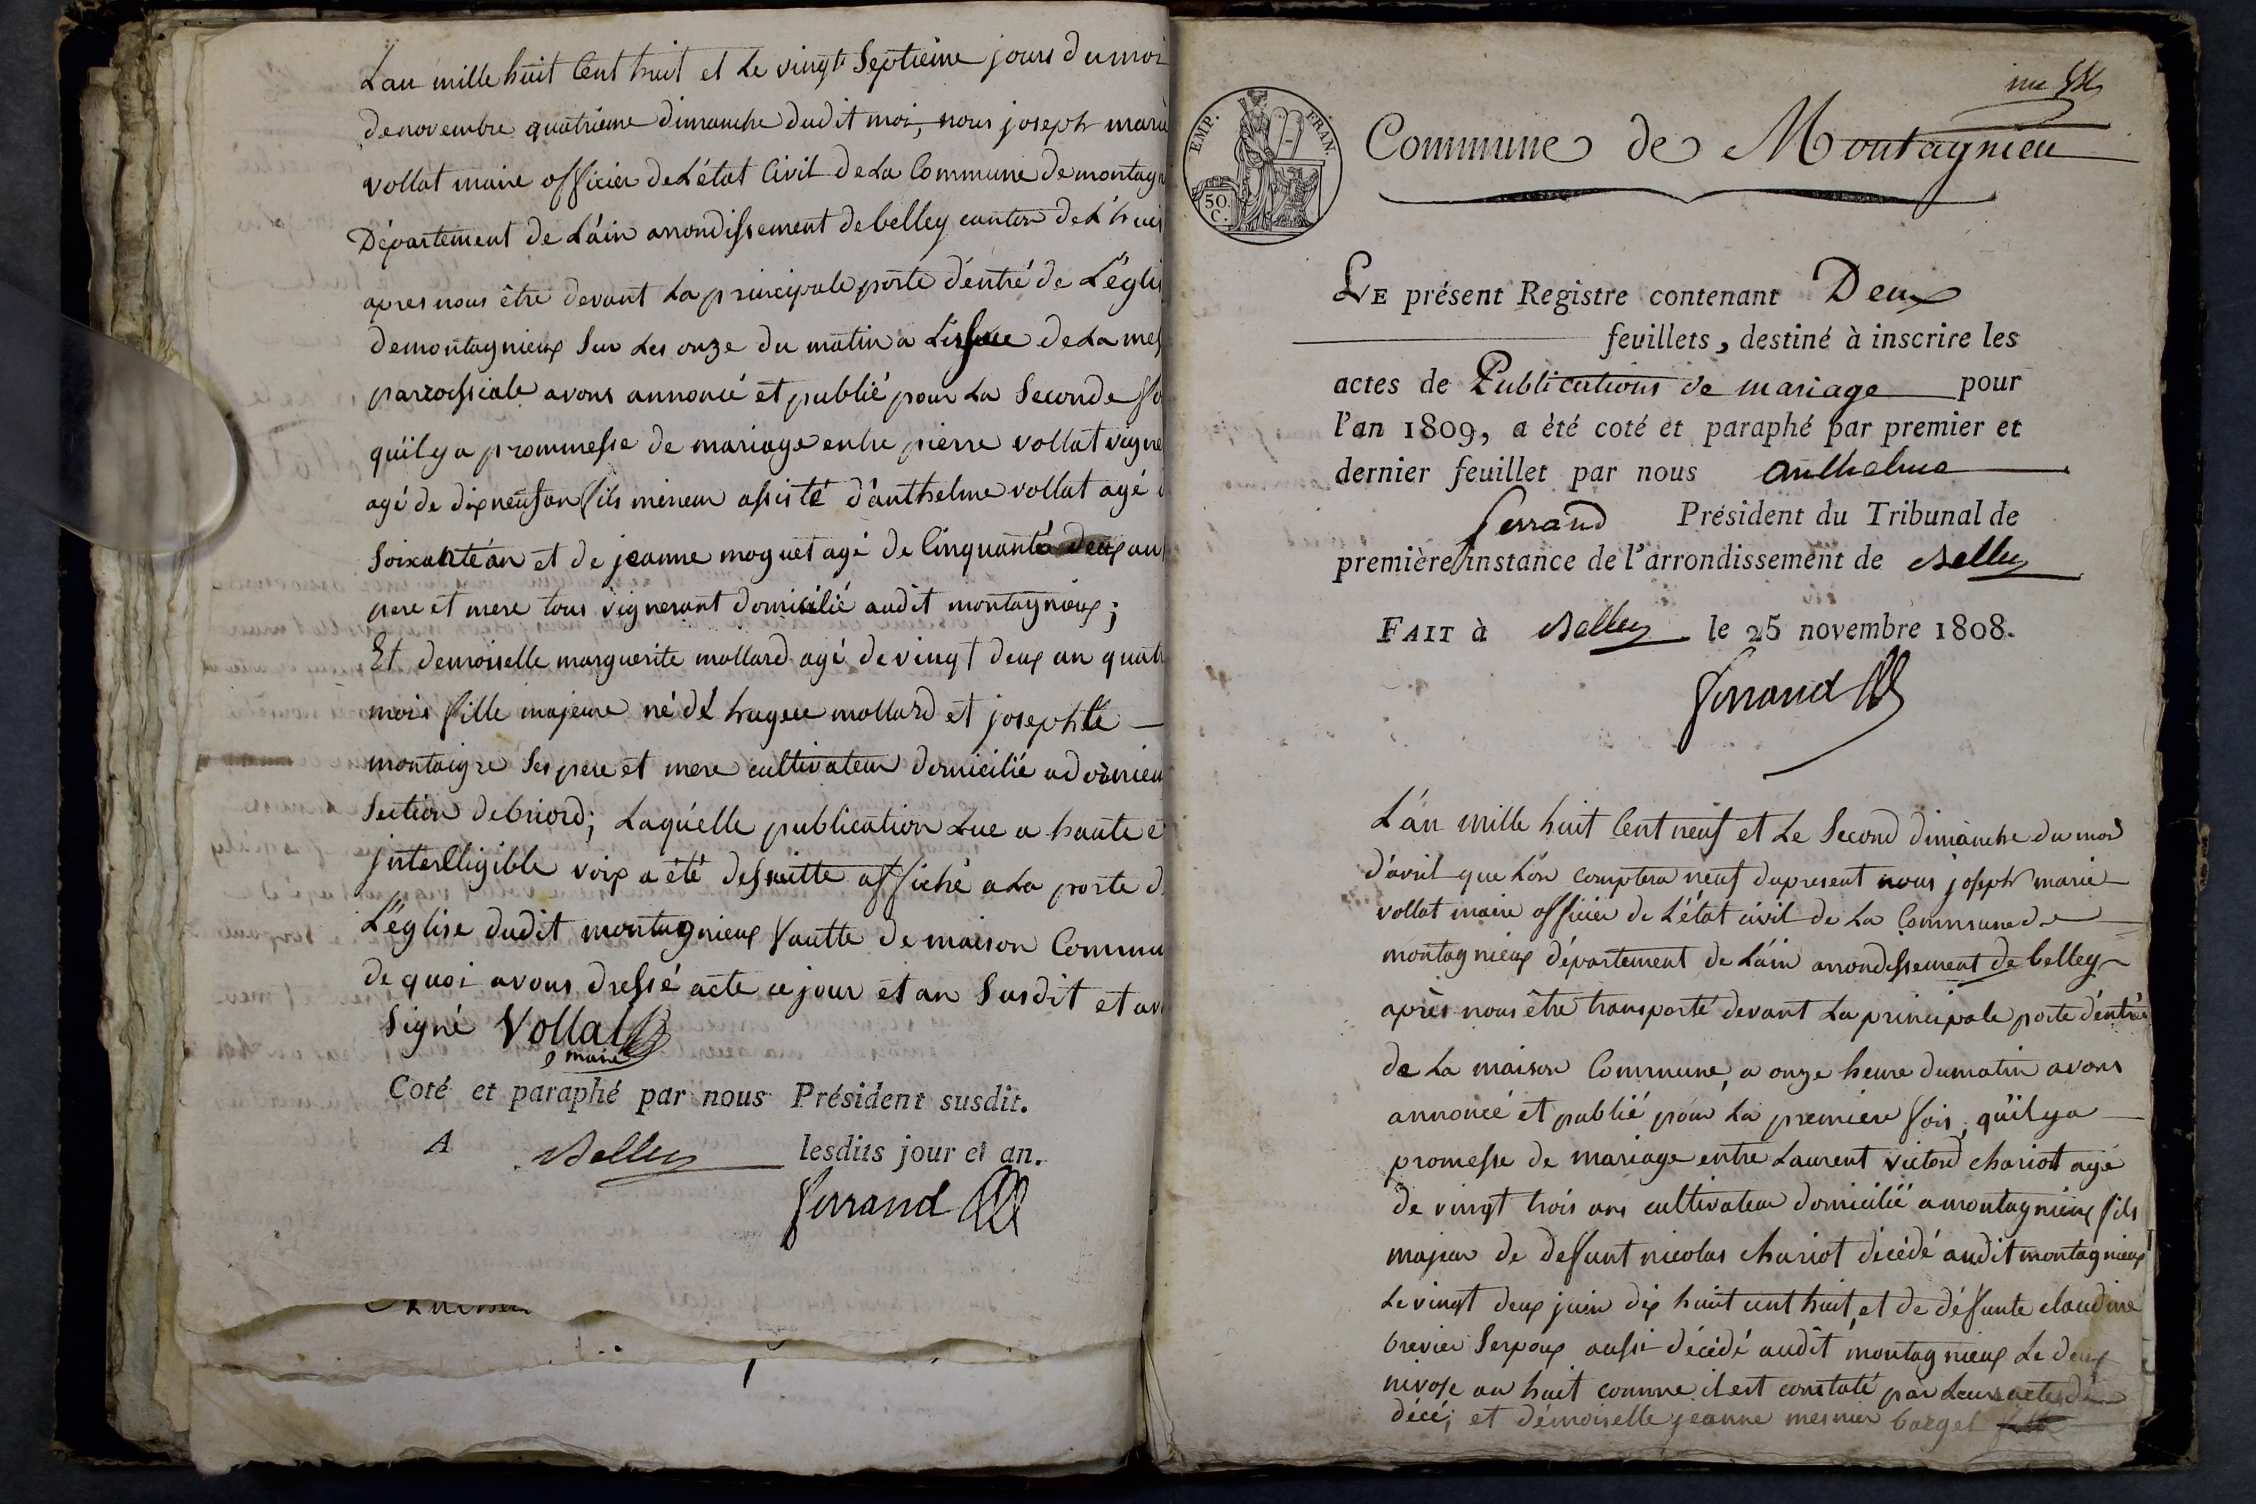 L'an mille huit Cent huit et Le vingt Septieme jours du moi
de novembre quatrieme dimanche dudit moi, nous joseph marie
vollat maire officier de L'état Civil de La Commune de montagn
Département de L'ain arrondissement de belley canton de L'huis
apres nous être devant La principale porte d'entré de L'églis
de montagnieux Sur Les onze du matin a L'issue de La mes
parroissiale avons annoncé et publié pour La Seconde fo
qu'il y a prommesse de mariage entre pierre vollat vigne
agé de dix neuf an fils mineur assisté d'anthelme vollat agé d
Soixante an et de jeanne moguet agé de Cinquante deux an
pere et mere tous vigneront domicilié audit montagnieux;
Et demoiselle marguerite mollard agé de vingt deux an quatr
mois fille majeure né de hugue mollard et josephte
montaigre Ses pere et mere cultivateur domicilié a dornieu
Section de briord; Laquelle publication Lue a haute e
jntelligible voix a été desuitte affiché a La porte d
L'église dudit montagnieux fautte de maison Commu
de quoi avons dressé acte ce jour et an Susdit et av
Signé Vollat
maire
Coté et paraphé par nous Président susdit.
A Belley lesdits jour et an.
Ferrand
EMP. FRAN.
50. C.
Commune de Montagnieu
LE présent Registre contenant Deux
feuillets, destiné à inscrire les
actes de Publications de mariage pour
l'an 1809, a été coté et paraphé par premier et
dernier feuillet par nous anthelme
ferrand Président du Tribunal de
première instance de l'arrondissement de Belley
FAIT à Belley le 25 novembre 1808.
Ferrand
L'an mille huit Cent neuf et Le Second dimanche du mois
d'avril que L'on comptera neuf du present nous joseph marie
vollat maire officier de L'état civil de La Commune de
montagnieux département de L'ain arrondissement de belley
après nous être transporté devant La principale porte d'entrée
de La maison Commune, a onze heure du matin avons
annoncé et publié pour La premiere fois, qu'il y a
promesse de mariage entre Laurent victord chariot agé
de vingt trois ans cultivateur domicilié a montagnieux fils
majeur de deffunt nicolas chariot décédé audit montagnieux
Le vingt deux juin dix huit cent huit, et de défunte claudine
brevier Serpoux aussi décédé audit montagnieux Le deux
nivose an huit comme il est constaté par Leurs actes de
décé; et démoiselle jeanne mesnier barget